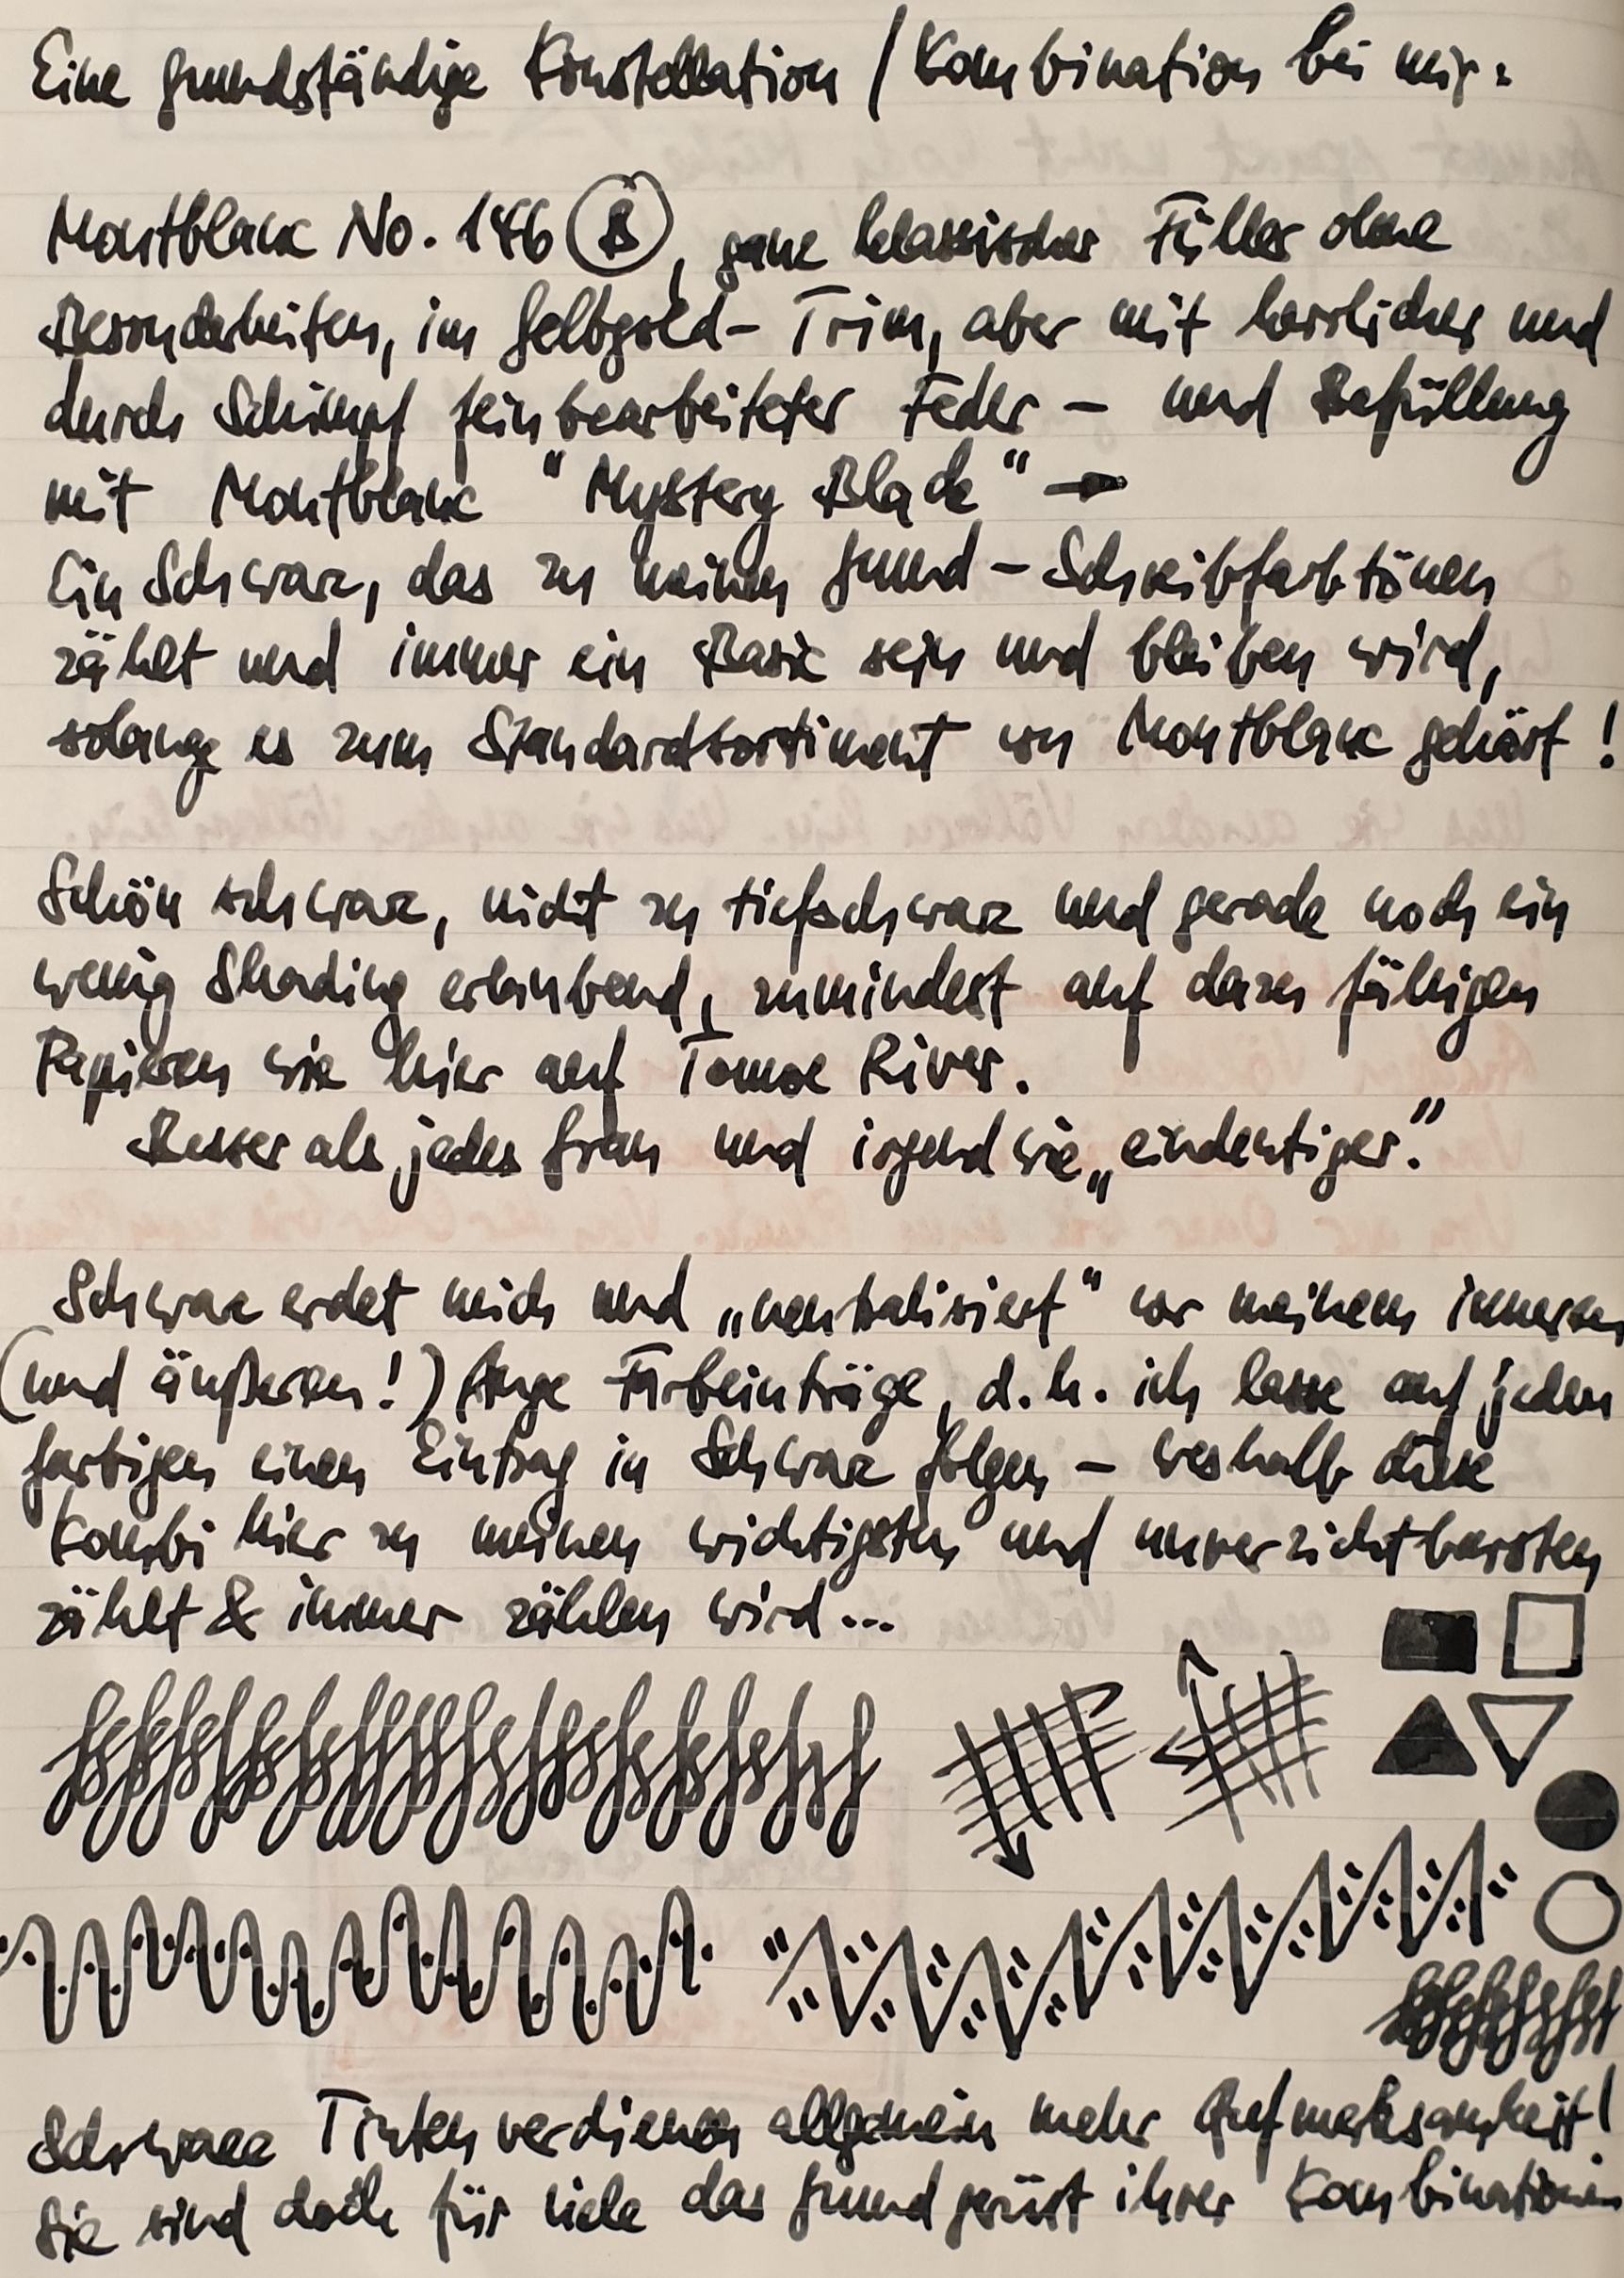 Eine grundständige Konstellation / Kombination bei mir:
Montblanc No. 146 (B), ganz klassischer Füller ohne
Besonderheiten, im Gelbgold-Trim, aber mit herrlicher und
durch Schimpf feinbearbeiteter Feder – und Befüllung
mit Montblanc "Mystery Black" –
Ein Schwarz, das zu meinen Grund-Schreibfarbtönen
zählt und immer ein Basic sein und bleiben wird,
solange es zum Standardsortiment von Montblanc gehört!
Schön schwarz, nicht zu tiefschwarz und gerade noch ein
wenig Shading erlaubend, zumindest auf dazu fähigen
Papieren wie hier auf Tomoe River.
Besser als jedes Grau und irgendwie „eindeutiger."
Schwarz erdet mich und „neutralisiert" vor meinem inneren
(und äußeren!) Auge Farbeinträge, d.h. ich lasse auf jeden
farbigen einen Eintrag in Schwarz folgen – weshalb diese
Kombi hier zu meinen wichtigsten und unverzichtbarsten
zählt & immer zählen wird...
Schwarze Tinten verdienen allgemein mehr Aufmerksamkeit!
Sie sind doch für viele das Grundgerüst ihrer Kombinationen